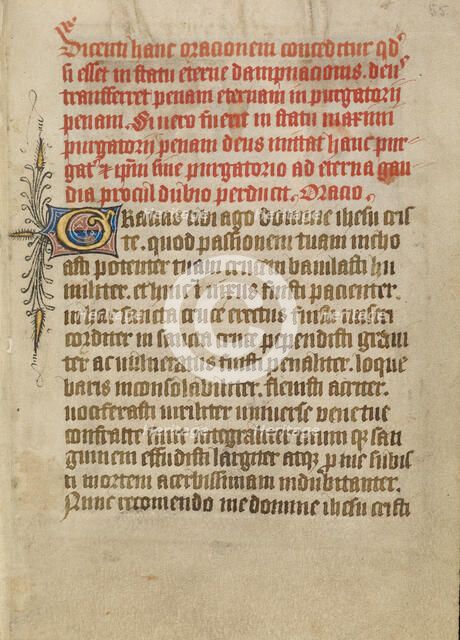 55.
Dicenti hanc oracionem conceditur qd
si esset in statu eterne dampnacionis. deus
transferret penam eternam in purgatorii
penam. Si uero fuerit in statu maximi
purgatorii penam deus mittat hanc pur
gat et ipm sine purgatorio ad eterna gau
dia procul dubio perducit. Oracio.
GRacias tibi ago domine ihesu cris
te. quod passionem tuam incho
asti potenter tuam crucem baiulasti hu
militer. et huic fixus fuisti pacienter.
in hac sancta cruce erectus fuisti miseri
corditer in sancta cruce pependisti graui
ter ac uulneratus fuisti penaliter. loque
baris inconsolabiliter. fleuisti acriter.
uociferasti uiriliter uniuerse uene tue
confracte fuere integraliter tuum qz san
guinem effudisti largiter atqz p me subis
ti mortem acerbissimam indubitanter.
Nunc recomendo me domine ihesu cristi
Heritage
Heritage
Heritage
Heritage